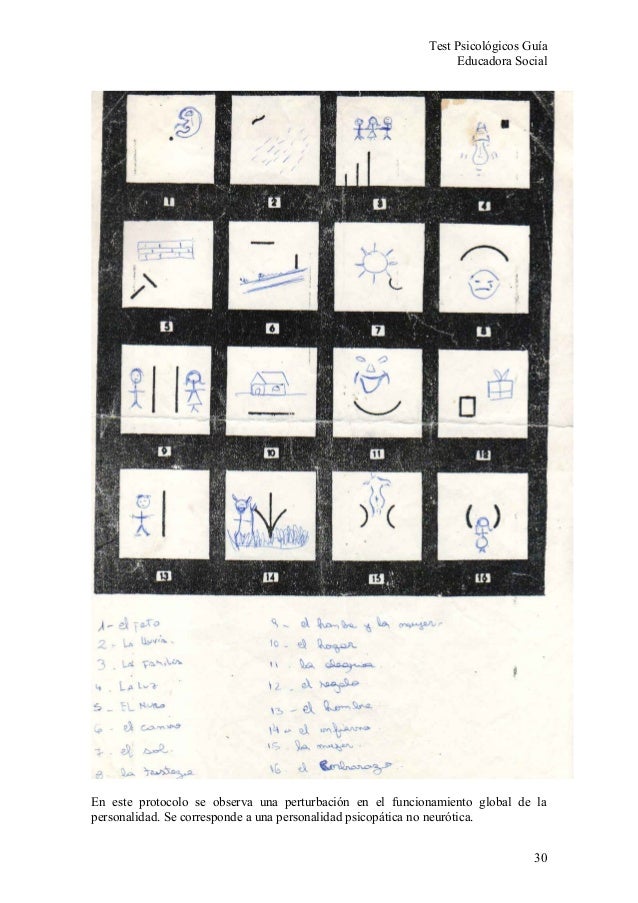 Test Psicológicos Guía
Educadora Social
1 2 3 4
5 6 7 8
9 10 11 12
13 14 15 16
1- el feto
2- La lluvia.
3. La familia
4. La Luz
5_ EL Muro
6- el camino
7- el sol.
8- la tristeza
9- el hombre y la mujer-
10- el hogar
11. la alegria.
12_ el regalo
13- el hombre.
14- el infierno
15. la mujer.
16 el Embarazo.
En este protocolo se observa una perturbación en el funcionamiento global de la
personalidad. Se corresponde a una personalidad psicopática no neurótica.
30